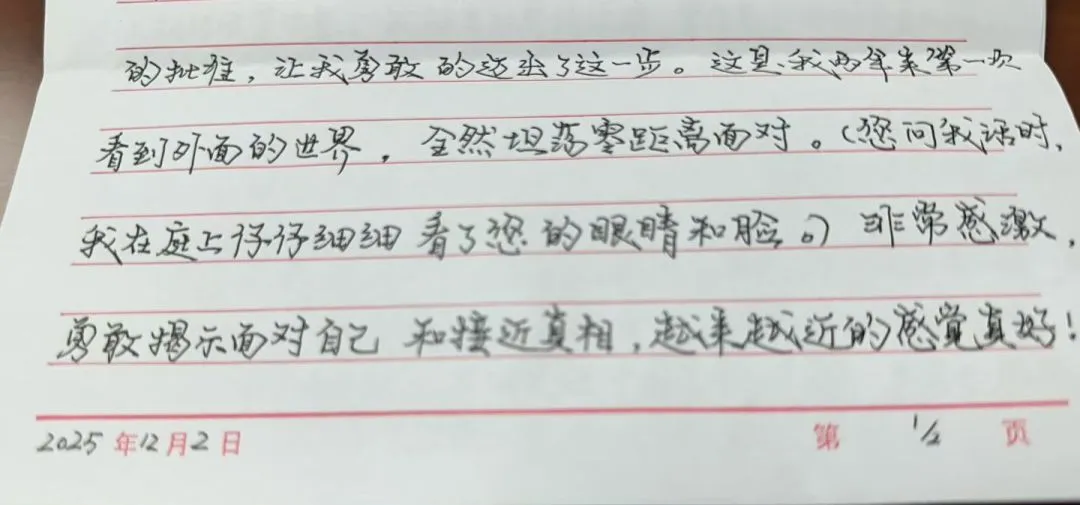 的批准，让我勇敢的迈出了这一步。这是我两年来第一次
看到外面的世界，全然坦荡零距离面对。（您问我话时，
我在庭上仔仔细细看了您的眼睛和脸。）非常感激，
勇敢揭示面对自己和接近真相，越来越近的感觉真好！
2025年12月2日 第 1/2 页